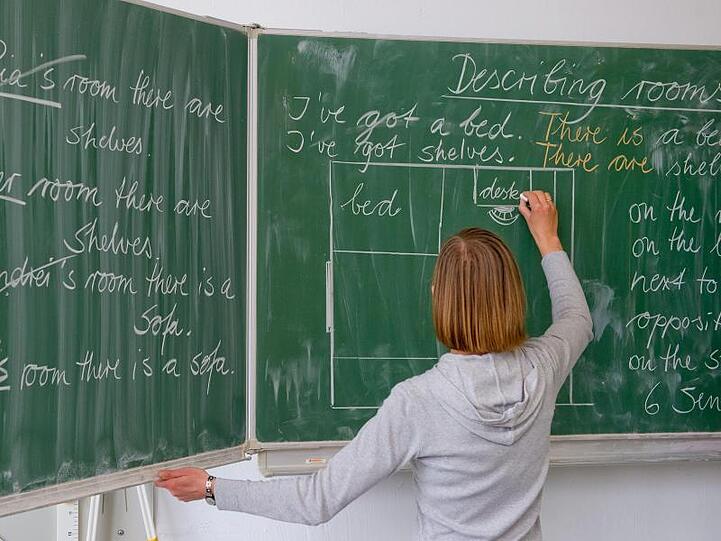 room there are
shelves.
room there are
Shelves
room there is a
Sofa.
room there is a sofa.
Describing rooms
I've got a bed. There is a be
I've got shelves. There are shel
bed
desk
on the
on the
next to
opposit
on the S
6 Sen